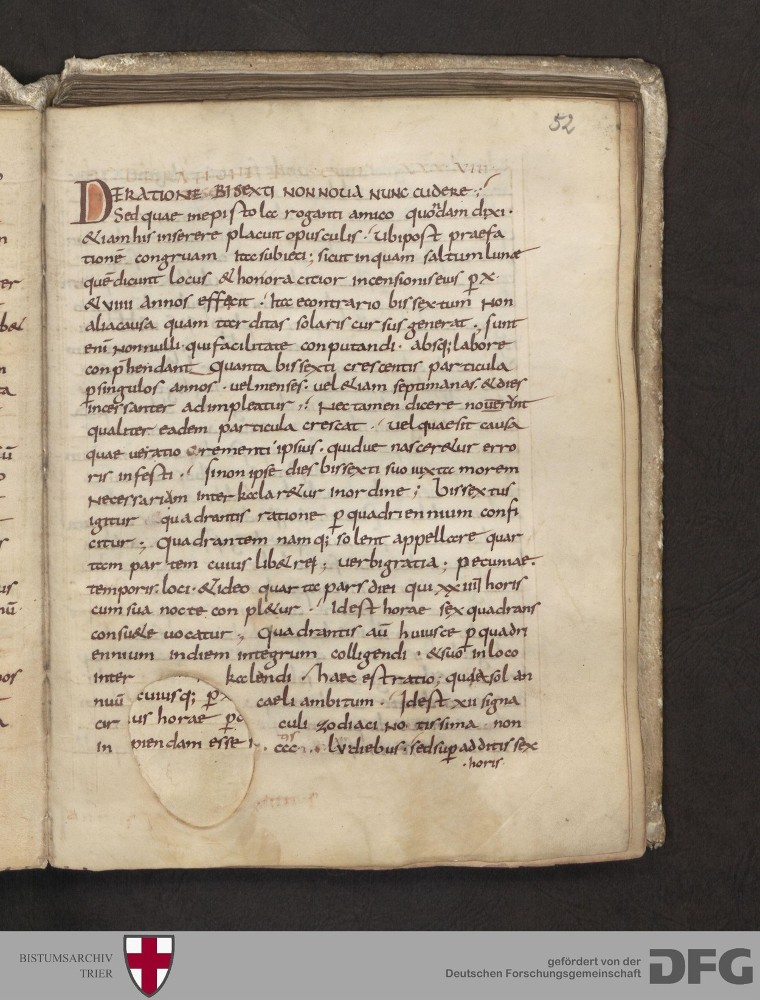 52
DE RATIONE BISEXTI NON NOUA NUNC CUDERE
Sed quae in epistola roganti amico quodam dixi.
&iam his inserere placuit opusculis. Ubi post praefa
tionē congruam ita subieci; sicut inquam saltum lunae
quē dicunt locus & hora citior incensionis eius p x
& viiii annos effecit. Ita econtrario bissextum non
alia causa quam tarditas solaris cursus generat; sunt
enī nonnulli qui facilitate conputandi. absq; labore
conp̄hendant Quanta bissexti crescentis particula
p singulos annos. vel menses. vel &iam septimanas. & dies
incessanter adimpleatur; Nec tamen dicere noverint
qualiter eadem particula crescat. vel quae sit causa
quae ve ratio crementi ipsius. quidve nascer&ur erro
ris infesti. si non ipse dies bissexti suo iuxta morem
necessariam interkalar&ur in ordine; bissextus
igitur quadrantis ratione p quadriennium confi
citur; Quadrantem namq; solent appellare quar
tam partem cuius lib& rei; verbi gratia; pecuniae.
temporis. loci. & ideo quarta pars diei qui xxiiii horis
cum sua nocte conpl&ur. Id est horae sex quadrans
consu&e vocatur; Quadrantis aū huiusce p quadri
ennium in diem integrum colligendi. & suo in loco
inter kalendi. haec est ratio; quia sol an
nuū cuiusq; p caeli ambitum. Id est xii signa
cir us horae p culi zodiaci no tissima non
in piendam esse ccc lv diebus. sed sup additis sex
horis
BISTUMSARCHIV
TRIER
gefördert von der
Deutschen Forschungsgemeinschaft
DFG